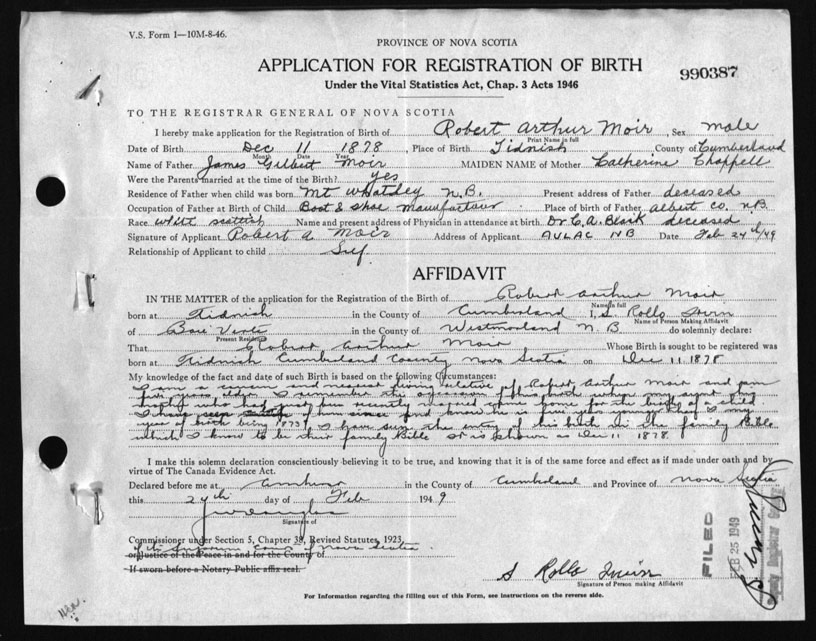 V.S. Form 1—10M-8-46.
PROVINCE OF NOVA SCOTIA
APPLICATION FOR REGISTRATION OF BIRTH
990387
Under the Vital Statistics Act, Chap. 3 Acts 1946
TO THE REGISTRAR GENERAL OF NOVA SCOTIA
I hereby make application for the Registration of Birth of Robert Arthur Moir, Sex male
Print Name in full
Date of Birth Dec 11 1878, Place of Birth Tidnish, County of Cumberland
Month Date Year
Name of Father James Gilbert Moir MAIDEN NAME of Mother Catherine Chappell
Were the Parents married at the time of the Birth? yes
Residence of Father when child was born Mt Whatley N.B. Present address of Father deceased
Occupation of Father at Birth of Child Boot & Shoe Manufactour Place of birth of Father Albert Co. N.B.
Race white scottish Name and present address of Physician in attendance at birth Dr C. A. Black deceased
Signature of Applicant Robert A Moir Address of Applicant AULAC NB Date Feb 24th/49
Relationship of Applicant to child Self
AFFIDAVIT
IN THE MATTER of the application for the Registration of the Birth of Robert Arthur Moir
Name in full
born at Tidnish in the County of Cumberland I, S. Rollo Irwin
Name of Person Making Affidavit
of Baie Verte in the County of Westmorland N B do solemnly declare:
Present Residence
That Robert Arthur Moir Whose Birth is sought to be registered was
born at Tidnish Cumberland County Nova Scotia on Dec 11 1878
My knowledge of the fact and date of such Birth is based on the following Circumstances:
I am a cousin and nearest living relative of Robert Arthur Moir and am
five years older. I remember the occasion of his birth when my aunt
I have seen of him since and know he is five years younger than I my
year of birth being 1873. I have seen the entry of his birth in the family Bible
which I know to be their family Bible it is shown as Dec 11 1878
I make this solemn declaration conscientiously believing it to be true, and knowing that it is of the same force and effect as if made under oath and by
virtue of The Canada Evidence Act.
Declared before me at Amherst in the County of Cumberland and Province of Nova Scotia
this 24th day of Feb 1949
Signature of
Commissioner under Section 5, Chapter 38, Revised Statutes, 1923,
of the Supreme Court of Nova Scotia.
or Justice of the Peace in and for the County of
If sworn before a Notary Public affix seal.
S Rollo Irwin
Signature of Person making Affidavit
FILED
FEB 25 1949
Deputy Registrar General
For Information regarding the filling out of this Form, see instructions on the reverse side.